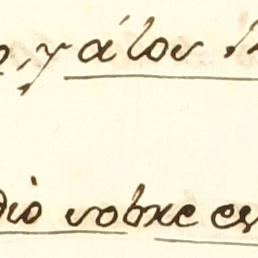 y á los
dio sobre es